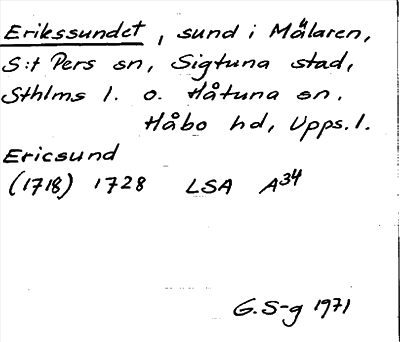 Erikssundet, sund i Mälaren,
S:t Pers sn, Sigtuna stad,
Sthlms l. o. Håtuna sn.
Håbo hd, Upps. l.
Ericsund
(1718) 1728 LSA A34
G. S-g 1971